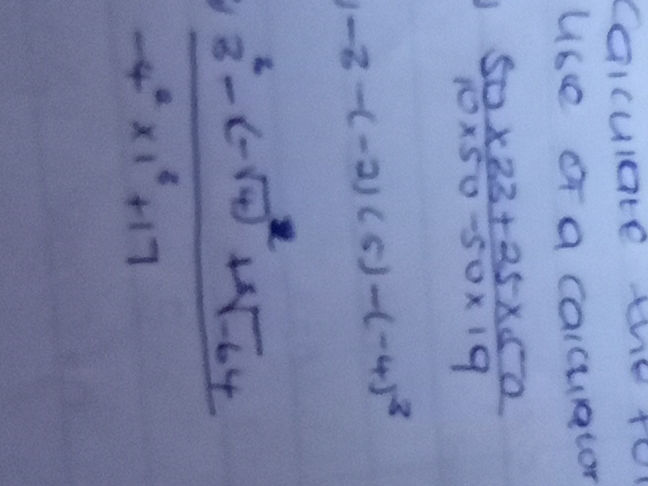 Calculate the fol
use of a calculator
50 x 22 + 25 x 50
10 x 50 - 50 x 19
) -2 - (-2)(5) - (-4)²
3² - (-√4)² + ³√-64
-4² x 1⁶ + 17